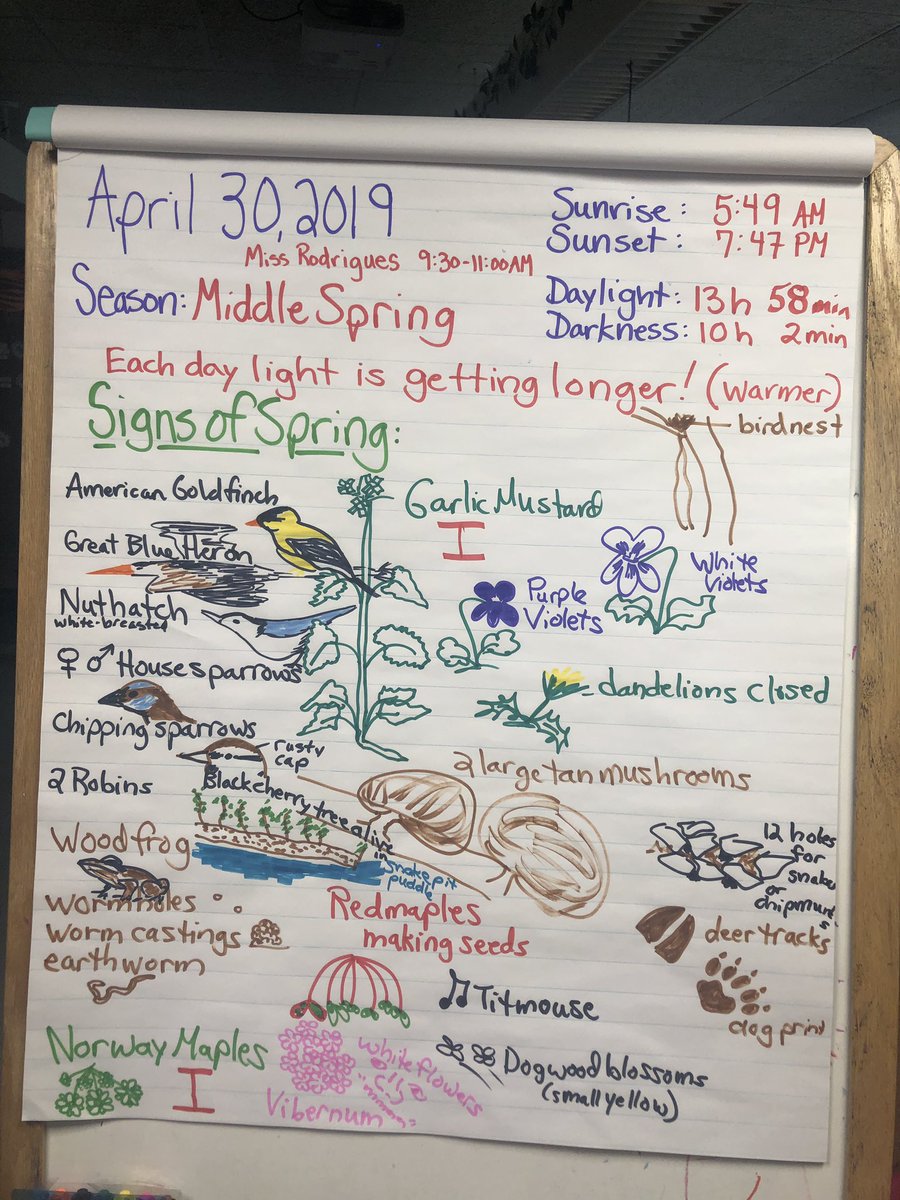 April 30, 2019
Sunrise: 5:49 AM
Sunset: 7:47 PM
Miss Rodrigues 9:30-11:00AM
Season: Middle Spring
Daylight: 13h 58min
Darkness: 10h 2min
Each day light is getting longer! (warmer)
Signs of Spring:
bird nest
American Goldfinch
Garlic Mustard
I
Great Blue Heron
White
Violets
Purple
Violets
Nuthatch
white-breasted
♀ ♂ House sparrows
dandelions closed
Chipping sparrows
rusty
cap
2 large tan mushrooms
2 Robins
Black cherry tree alive
in
snake pit
puddle
12 holes
for
snake
or
chipmunks
Wood frog
wormholes
Red maples
making seeds
worm castings
earthworm
deer tracks
Titmouse
dog print
Norway Maples
I
white flowers
Vibernum
Dogwood blossoms
(small yellow)